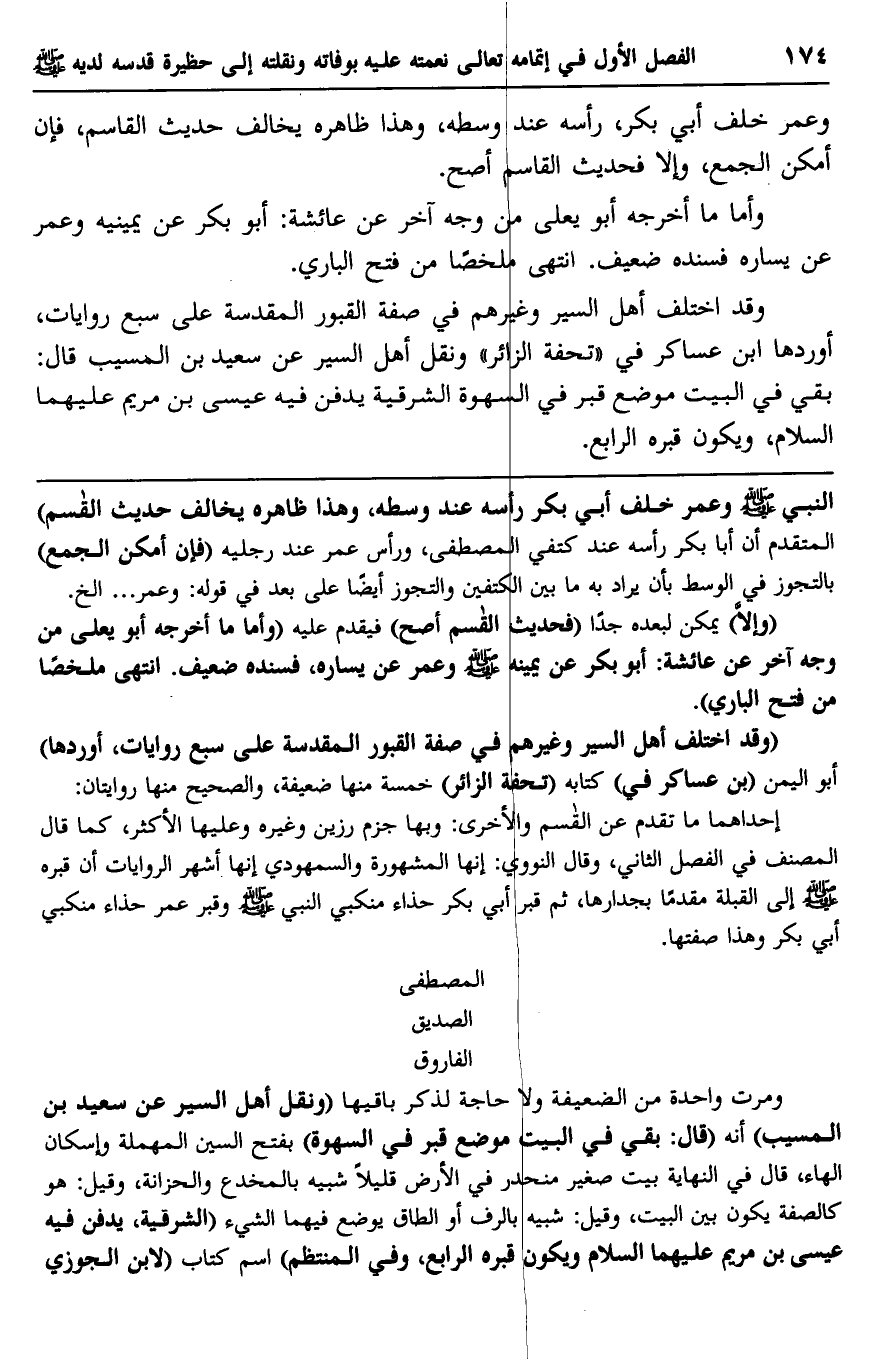 ١٧٤ الفصل الأول في إتمامه تعالى نعمته عليه بوفاته ونقلته إلى حظيرة قدسه لديه ﷺ
وعمر خلف أبي بكر، رأسه عند وسطه، وهذا ظاهره يخالف حديث القاسم، فإن
أمكن الجمع، وإلا فحديث القاسم أصح.
وأما ما أخرجه أبو يعلى من وجه آخر عن عائشة: أبو بكر عن يمينيه وعمر
عن يساره فسنده ضعيف. انتهى ملخصًا من فتح الباري.
وقد اختلف أهل السير وغيرهم في صفة القبور المقدسة على سبع روايات،
أوردها ابن عساكر في «تحفة الزائر» ونقل أهل السير عن سعيد بن المسيب قال:
بقي في البيت موضع قبر في السهوة الشرقية يدفن فيه عيسى بن مريم عليهما
السلام، ويكون قبره الرابع.
النبي ﷺ وعمر خلف أبي بكر رأسه عند وسطه، وهذا ظاهره يخالف حديث القٰسم)
المتقدم أن أبا بكر رأسه عند كتفي المصطفى، ورأس عمر عند رجليه (فإن أمكن الجمع)
بالتجوز في الوسط بأن يراد به ما بين الكتفين والتجوز أيضًا على بعد في قوله: وعمر... الخ.
(وإلاَّ) يمكن لبعده جدًا (فحديث القٰسم أصح) فيقدم عليه (وأما ما أخرجه أبو يعلى من
وجه آخر عن عائشة: أبو بكر عن يمينه ﷺ وعمر عن يساره، فسنده ضعيف. انتهى ملخصًا
من فتح الباري).
(وقد اختلف أهل السير وغيرهم في صفة القبور المقدسة على سبع روايات، أوردها)
أبو اليمن (بن عساكر في) كتابه (تحفة الزائر) خمسة منها ضعيفة، والصحيح منها روايتان:
إحداهما ما تقدم عن القٰسم والأخرى: وبها جزم رزين وغيره وعليها الأكثر، كما قال
المصنف في الفصل الثاني، وقال النووي: إنها المشهورة والسمهودي إنها أشهر الروايات أن قبره
ﷺ إلى القبلة مقدمًا بجدارها، ثم قبر أبي بكر حذاء منكبي النبي ﷺ وقبر عمر حذاء منكبي
أبي بكر وهذا صفتها.
المصطفى
الصديق
الفاروق
ومرت واحدة من الضعيفة ولا حاجة لذكر باقيها (ونقل أهل السير عن سعيد بن
المسيب) أنه (قال: بقي في البيت موضع قبر في السهوة) بفتح السين المهملة وإسكان
الهاء، قال في النهاية بيت صغير منحدر في الأرض قليلاً شبيه بالمخدع والحزانة، وقيل: هو
كالصفة يكون بين البيت، وقيل: شبيه بالرف أو الطاق يوضع فيهما الشيء (الشرقية، يدفن فيه
عيسى بن مريم عليهما السلام ويكون قبره الرابع، وفي المنتظم) اسم كتاب (لابن الجوزي